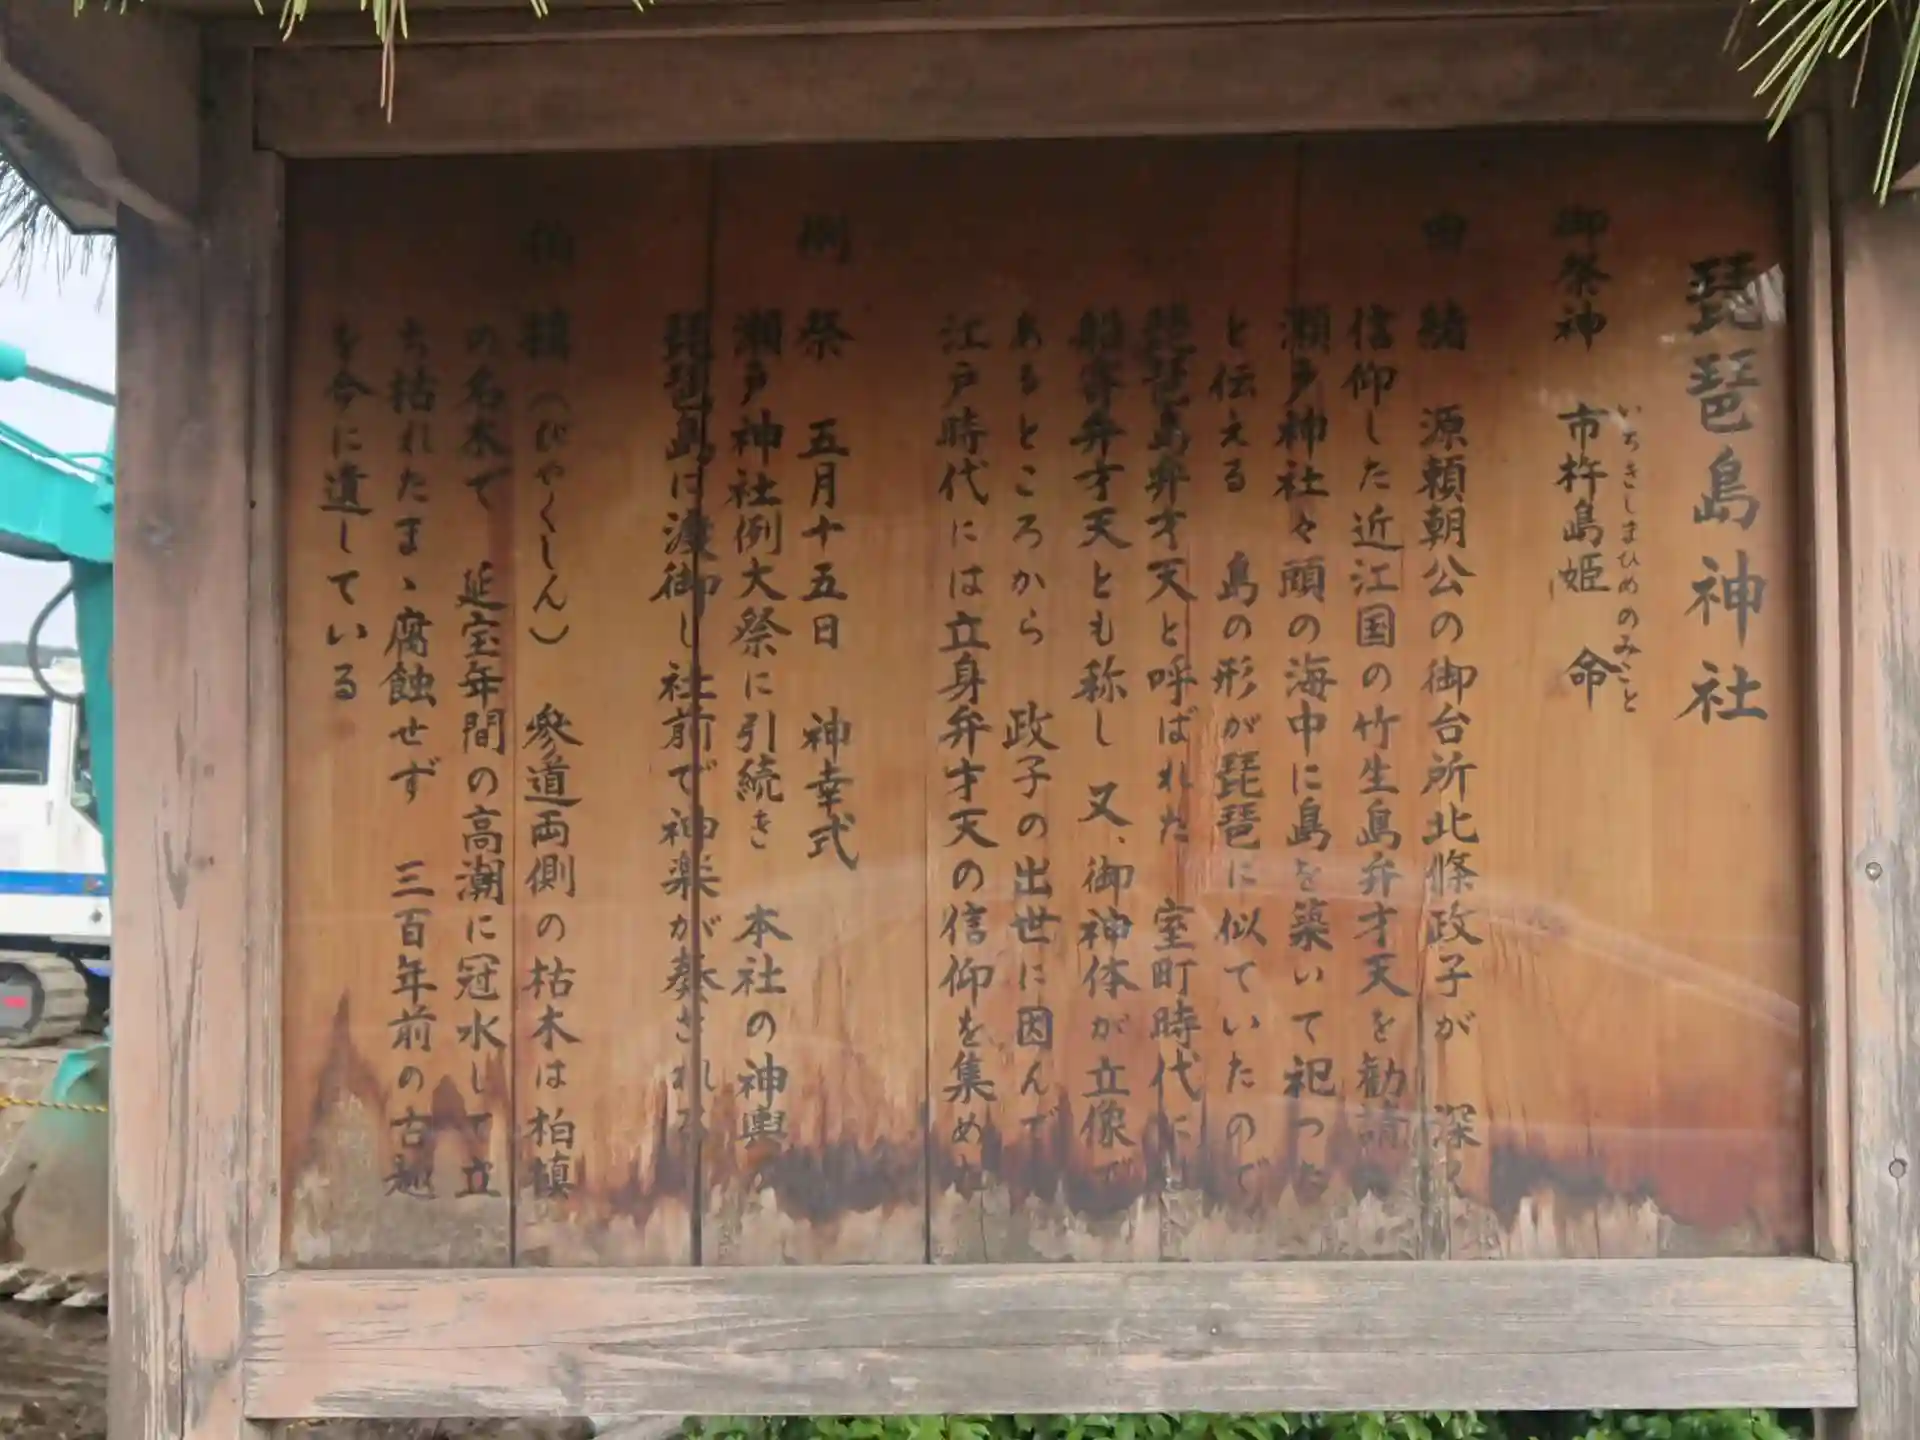 琵琶島神社
御祭神 市杵島姫 命
いちきしまひめのみこと
由 緒 源頼朝公の御台所北條政子が 深く
信仰した近江国の竹生島弁才天を勧請し
瀬戸神社々頭の海中に島を築いて祀った
と伝える 島の形が琵琶に似ていたので
琵琶島弁才天と呼ばれた 室町時代には
船寄弁才天とも称し 又、御神体が立像で
あるところから 政子の出世に因んで
江戸時代には立身弁才天の信仰を集めた
例 祭 五月十五日 神幸式
瀬戸神社例大祭に引続き 本社の神輿が
琵琶島に渡御し社前で神楽が奏される
栢 槙(びゃくしん) 参道両側の枯木は柏槙
の名木で 延宝年間の高潮に冠水して立
ち枯れたまゝ腐蝕せず 三百年前の古趣
を今に遺している